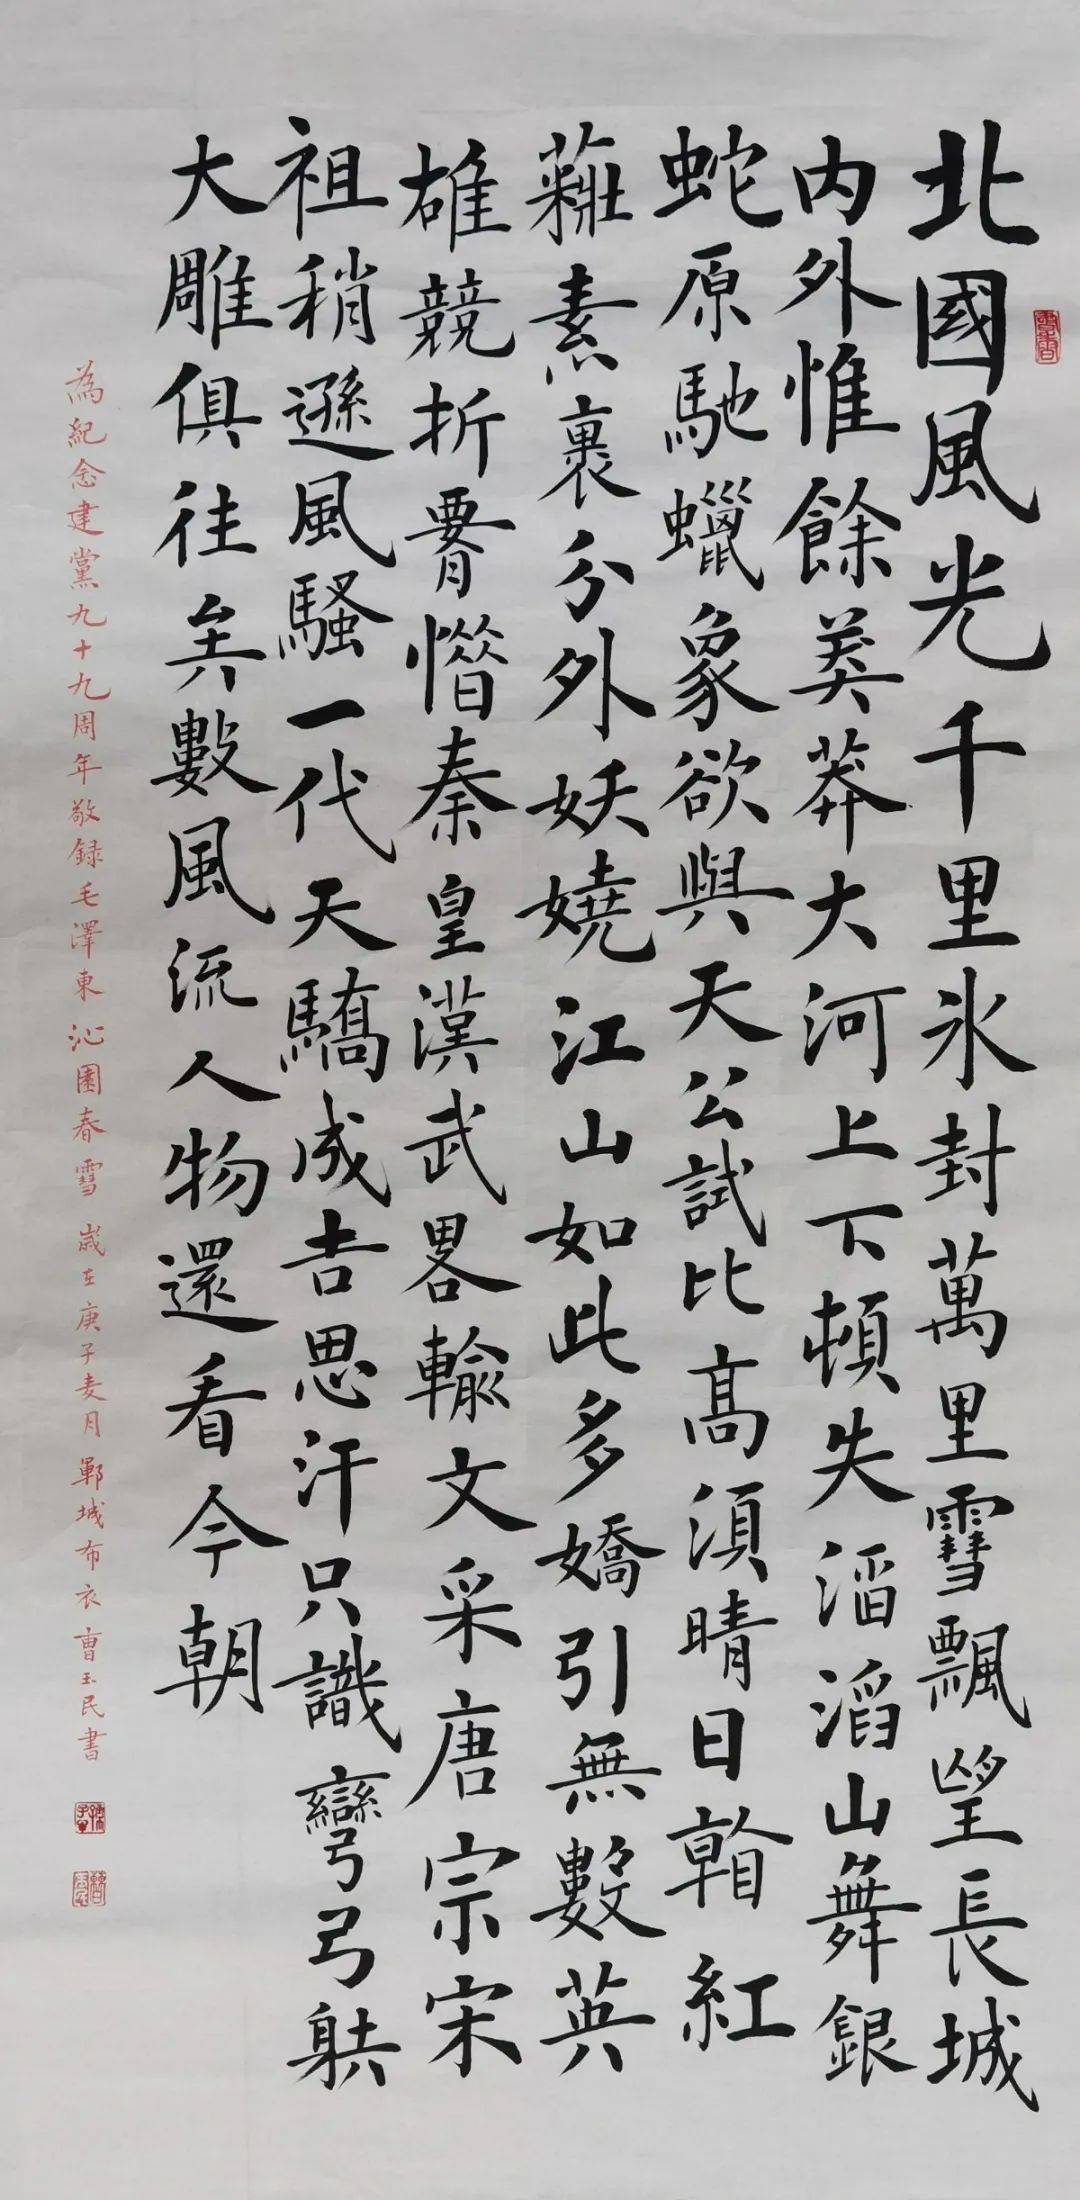 北國風光千里氷封萬里雪飄望長城
内外惟餘莽莽大河上下頓失滔滔山舞銀
蛇原馳蠟象欲與天公試比高須晴日看紅
粧素裹分外妖嬈江山如此多嬌引無數英
雄競折腰惜秦皇漢武畧輸文采唐宗宋
祖稍遜風騷一代天驕成吉思汗只識彎弓射
大雕俱往矣數風流人物還看今朝
為紀念建黨九十九周年敬録毛澤東沁園春雪 歲在庚子麦月鄆城布衣曹玉民書